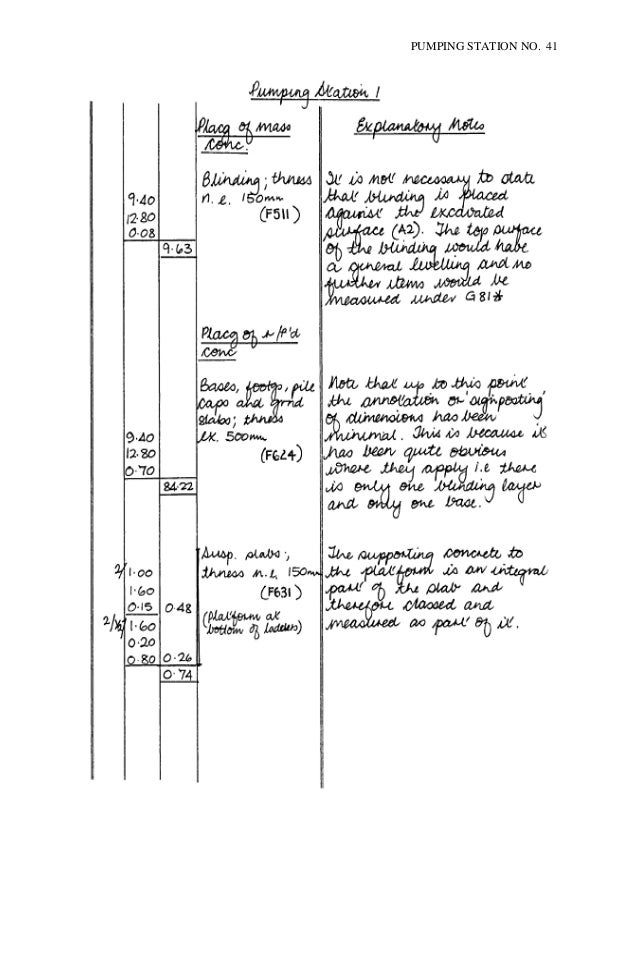 PUMPING STATION NO. 41
Pumping Station 1
Placg of mass
conc.
Explanatory Notes
Blinding; thness
n.e. 150mm
(F511)
9.40
12.80
0.08
9.63
It is not necessary to state
that blinding is placed
against the excavated
surface (A2). The top surface
of the blinding would have
a general levelling and no
further items would be
measured under G81*
Placg of r/f'd
conc
Bases, footgs, pile
caps and grnd
slabs; thness
ex. 500mm
(F624)
9.40
12.80
0.70
84.22
Note that up to this point
the annotation or 'signposting'
of dimensions has been
minimal. This is because it
has been quite obvious
where they apply i.e there
is only one blinding layer
and only one base.
Susp. slabs;
thness n.e. 150mm
(F631)
(Platform at
bottom of ladders)
2/ 1.00
1.60
0.15 0.48
2/½/ 1.60
0.20
0.80 0.26
0.74
The supporting concrete to
the platform is an integral
part of the slab and
therefore classed and
measured as part of it.